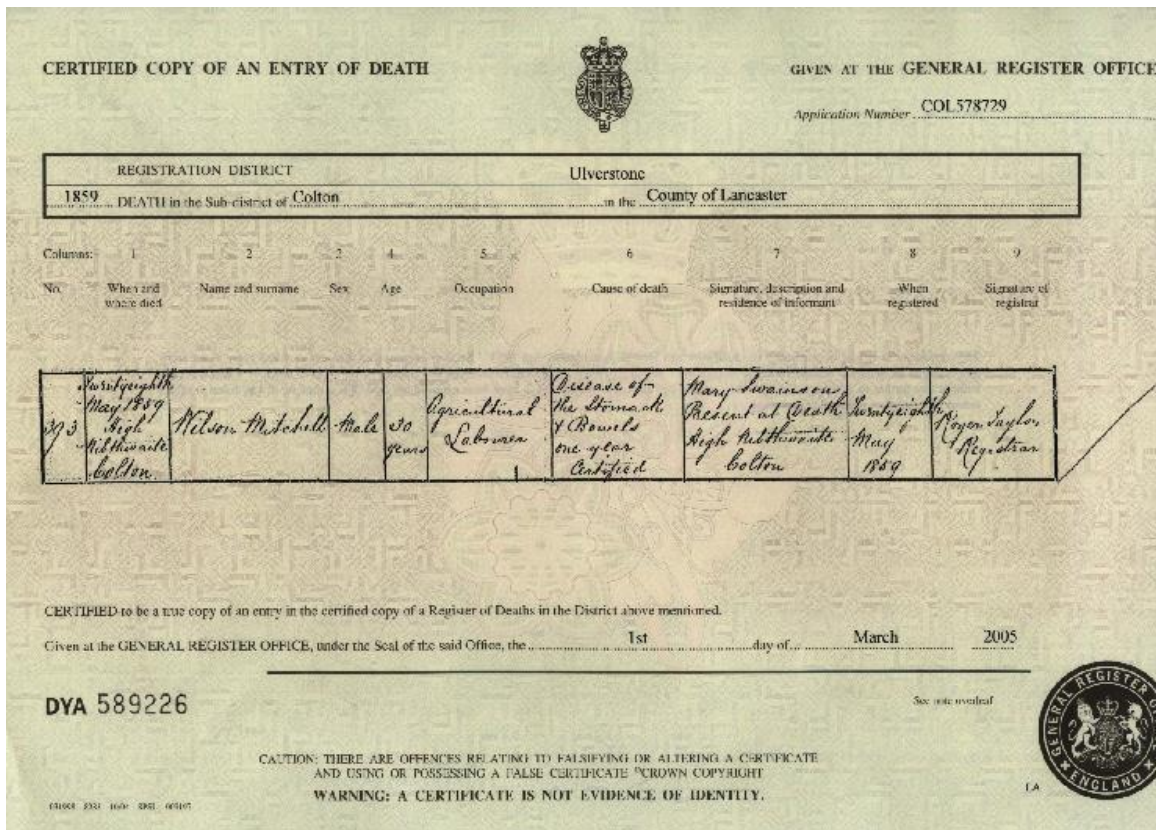 CERTIFIED COPY OF AN ENTRY OF DEATH
GIVEN AT THE GENERAL REGISTER OFFICE
Application Number COL578729
REGISTRATION DISTRICT Ulverstone
1859 DEATH in the Sub-district of Colton in the County of Lancaster
Columns: 1 2 3 4 5 6 7 8 9
No. When and where died Name and surname Sex Age Occupation Cause of death Signature, description and residence of informant When registered Signature of registrar
393
Twentyeighth
May 1859
High
Nibthwaite
Colton
Wilson Mitchell
Male
30
years
Agricultural
Labourer
Disease of
the Stomach
& Bowels
one year
Certified
Mary Swainson
Present at Death
High Nibthwaite
Colton
Twentyeighth
May
1859
Roger Taylor
Registrar
CERTIFIED to be a true copy of an entry in the certified copy of a Register of Deaths in the District above mentioned.
Given at the GENERAL REGISTER OFFICE, under the Seal of the said Office, the 1st day of March 2005
DYA 589226
See note overleaf
CAUTION: THERE ARE OFFENCES RELATING TO FALSIFYING OR ALTERING A CERTIFICATE
AND USING OR POSSESSING A FALSE CERTIFICATE ©CROWN COPYRIGHT
WARNING: A CERTIFICATE IS NOT EVIDENCE OF IDENTITY.
GENERAL REGISTER
ENGLAND